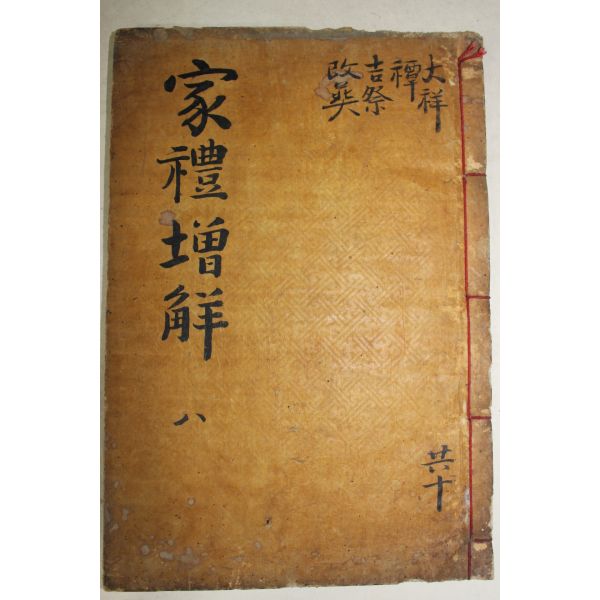 家禮增解
八
大祥
禫
吉祭
改葬
共十